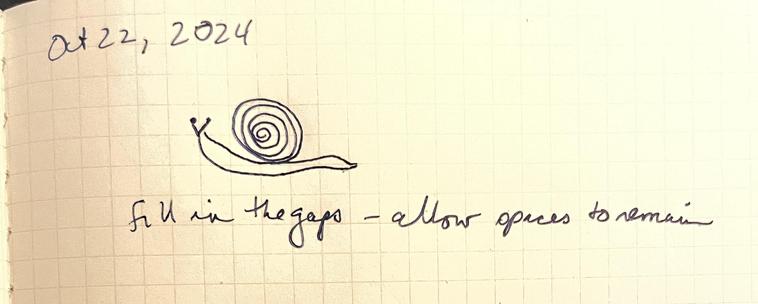 Oct 22, 2024
fill in the gaps – allow spaces to remain